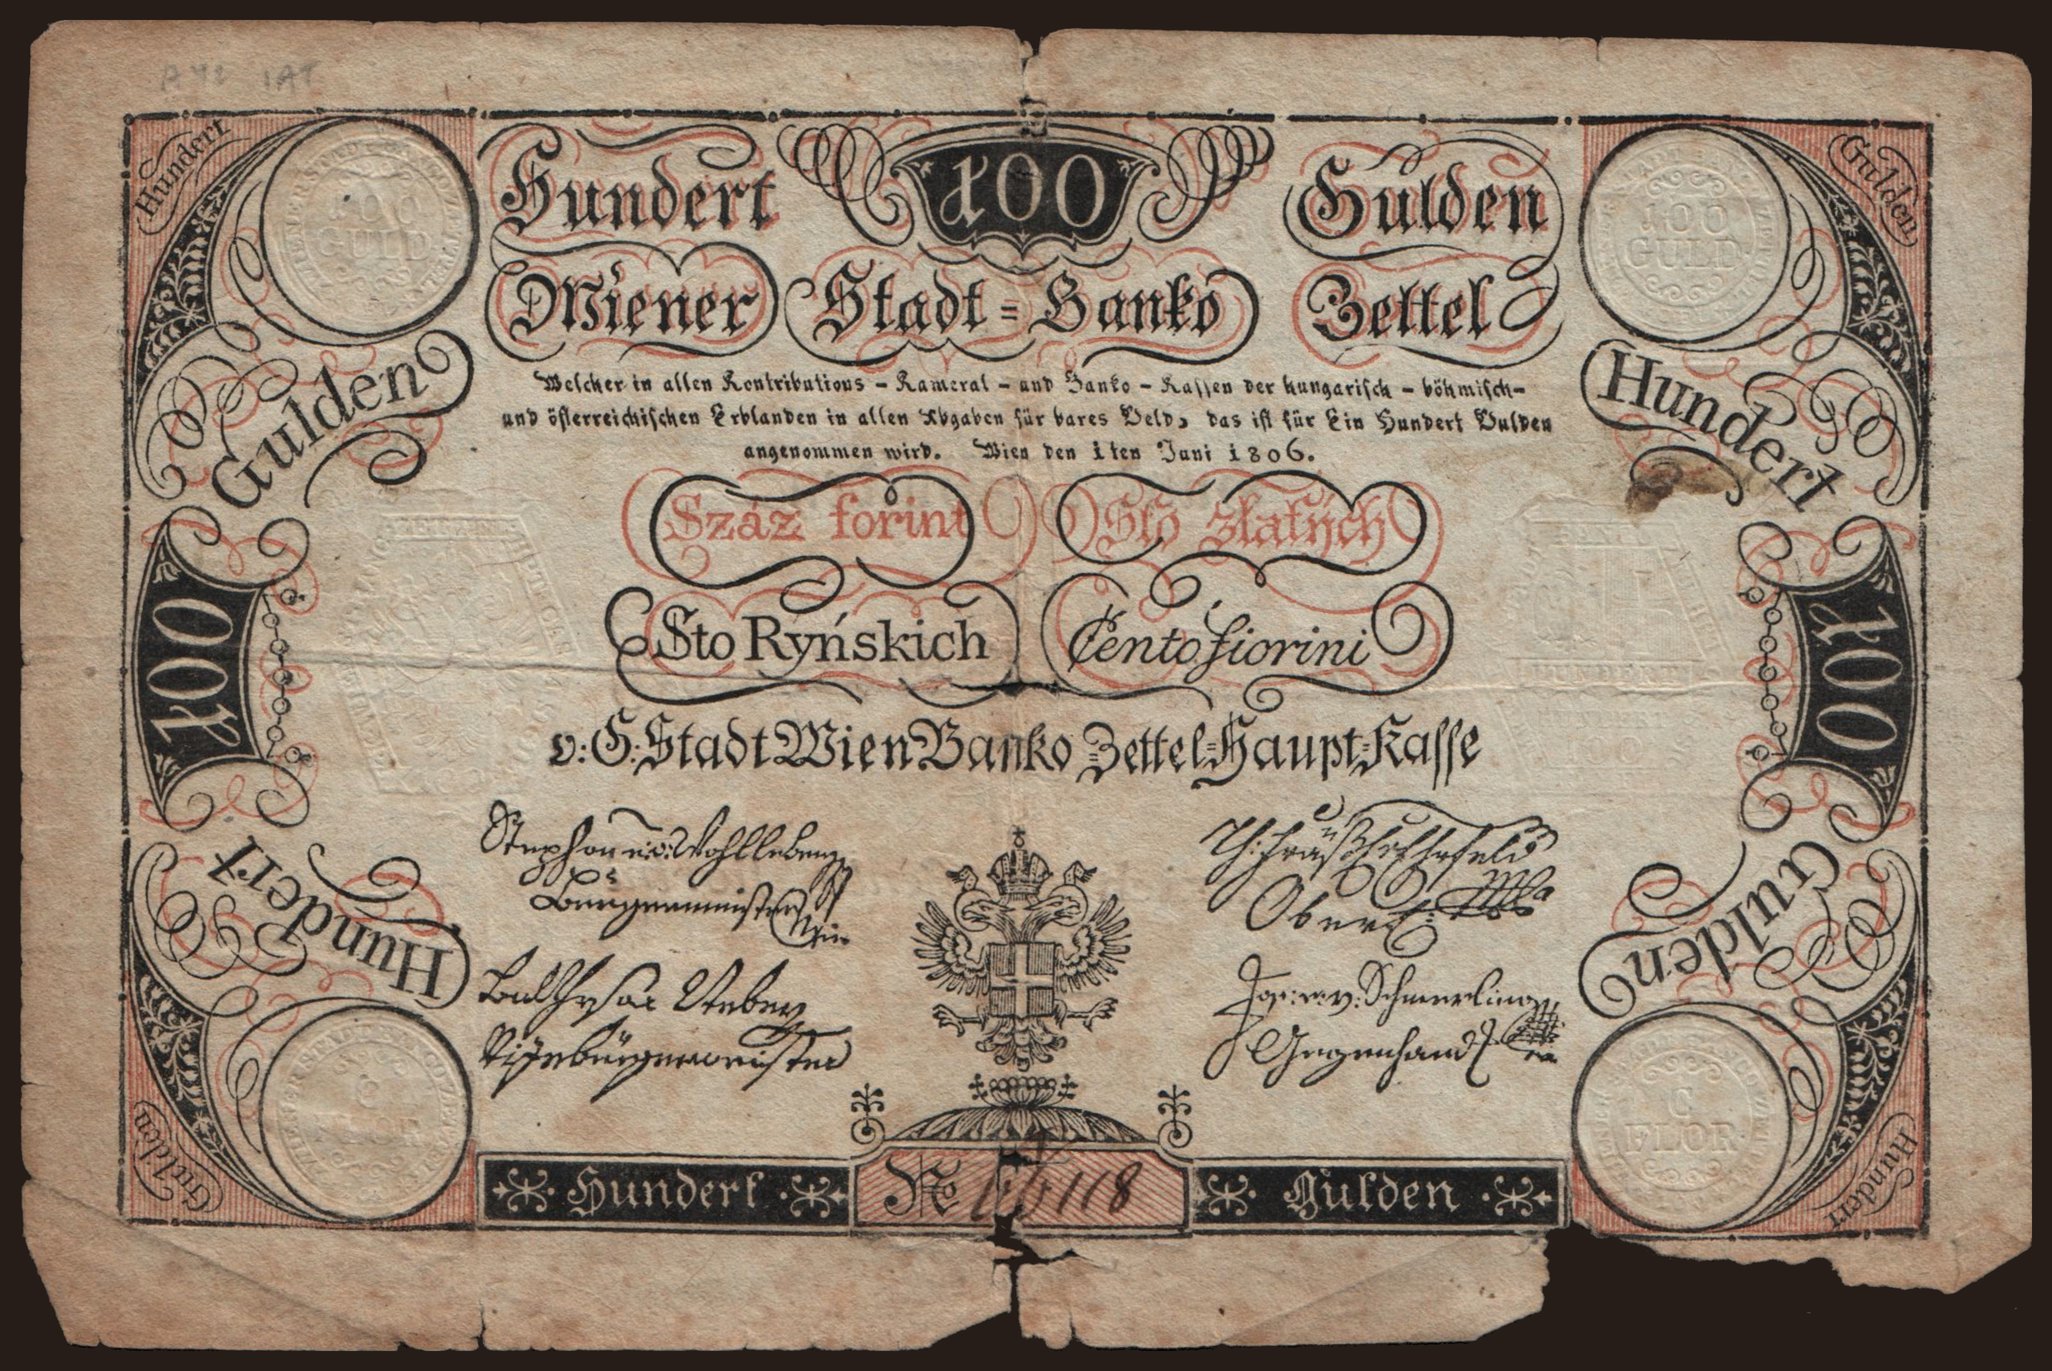 Hundert 100 Gulden
Wiener Stadt=Banko Zettel
Welcher in allen Kontributions – Kameral – und Banko – Kassen der hungarisch – böhmisch–
und österreichischen Erblanden in allen Abgaben für bares Geld, das ist für Ein Hundert Gulden
angenommen wird. Wien den 1ten Juni 1806.
Száz forint Sto zlatých
Sto Ryńskich Cento fiorini
v: G: Stadt Wien Banko Zettel=Haupt=Kasse
Hundert
Gulden
100
Hundert
Gulden
Gulden
Hundert
100
Gulden
Hundert
100
GULD
100
GULD
C
FLOR
C
FLOR
HUNDERT
Stephan e:v: Wohlleben
Bürgermeister
Balthasar
Vizebürgermeister
Ober
Jos: e: v: Schmerling
Gegenhand
Hundert No 118 Gulden